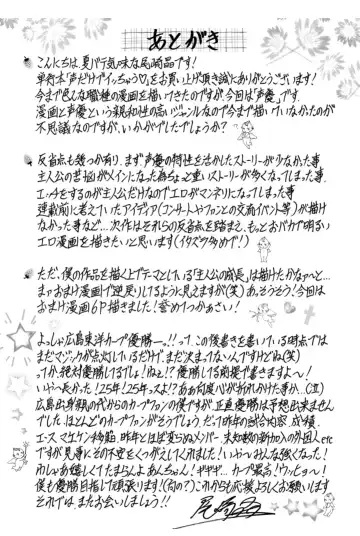 あとがき
こんにちは、夏バテ気味な尾崎晶です!
単行本「声だけでイッちゃう♡」をお買い上げ頂き誠にありがとうございます!
今まで色んな職種の漫画を描いてきたのですが、今回は「声優」です。
漫画と声優という親和性の高いジャンルなので今まで描いていなかったのが
不思議なのですが、いかがでしたでしょうか?
反省点も幾つか有り、まず声優の特性を活かしたストーリーが少なかった事
主人公の苦悩がメインになった為ちょっと重いストーリーが多くなってしまった事、
エッチをするのが主人公だけなのでエロがマンネリになってしまった事
連載前に考えていたアイディア(コンサートやファンとの交流イベント等)が描け
なかった事など…次作はそれらの反省点を踏まえ、もっとおバカで明るい
エロ漫画を描きたいと思います(イタズラ多めで!)
ただ、僕の作品を描く上でテーマとしている「主人公の成長」は描けたかなぁ〜と…
まぁおまけ漫画で逆戻りしてるようにも見えますが(笑)あっそうそう!今回は
おまけ漫画6P描きました!楽しんで頂ければ幸いです。
よっしゃ広島東洋カープ優勝ー。!!って、この後書きを書いている時点では
まだマジックが点灯しているだけで、まだ決まってないんですけどね(笑)
ってか、絶対優勝してるでしょ!ねっ!?優勝してる前提で書きますよ〜!
いや〜長かった!25年!25年っスよ!?
広島出身
カープファンの僕ですが、正直優勝は予想出来ません
でした。ほとんどのカープファンがそうでしょう。だって昨年の試合内容、成績、
エース マエケン移籍、昨年とほぼ変らぬメンバー、未知数の新加入の外国人etc
ですが見事にその不安をくつがえしてくれました!いや〜みんな強くなった!
わしゃあ嬉しくてたまらんよあんちゃん!ギギギ…カープ最高!ウッヒョ〜!
僕も優勝目指して頑張ります!(何の?)これからも応援よろしくお願いします
それでは、またお会いしましょう!!